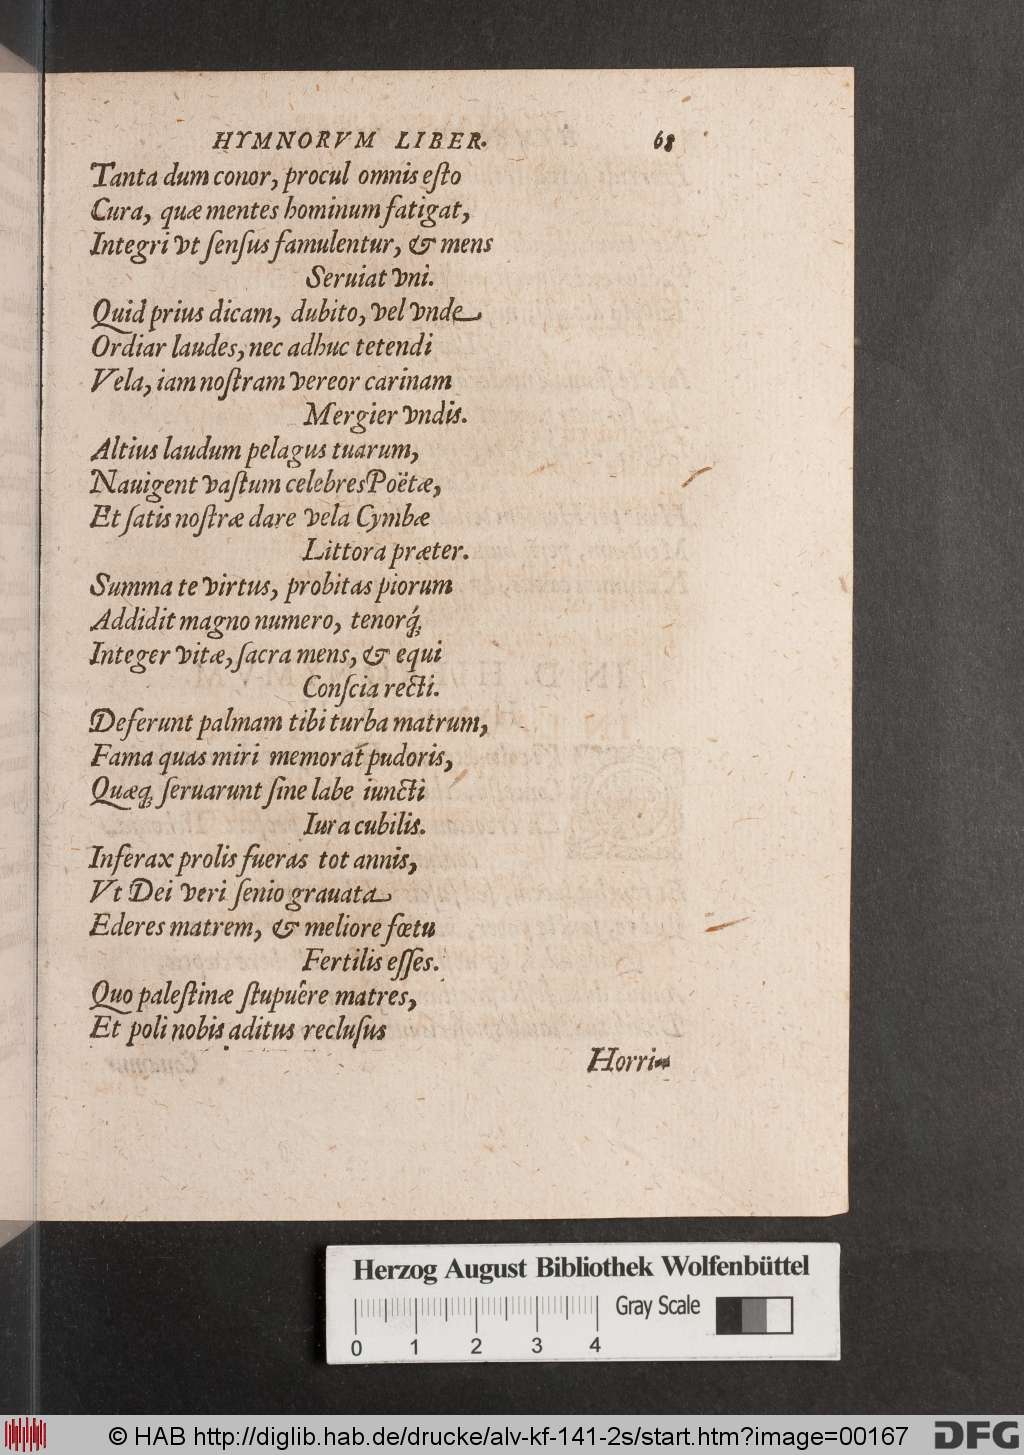 HYMNORVM LIBER. 68
Tanta dum conor, procul omnis eſto
Cura, quæ mentes hominum fatigat,
Integri vt ſenſus famulentur, & mens
Seruiat vni.
Quid prius dicam, dubito, vel vnde
Ordiar laudes, nec adhuc tetendi
Vela, iam noſtram vereor carinam
Mergier vndis.
Altius laudum pelagus tuarum,
Nauigent vaſtum celebres Poëtæ,
Et ſatis noſtræ dare vela Cymbæ
Littora præter.
Summa te virtus, probitas piorum
Addidit magno numero, tenorq́;
Integer vitæ, ſacra mens, & equi
Conſcia recti.
Deferunt palmam tibi turba matrum,
Fama quas miri memorat pudoris,
Quæq; ſeruarunt ſine labe iuncti
Iura cubilis.
Inferax prolis fueras tot annis,
Vt Dei veri ſenio grauata
Ederes matrem, & meliore fœtu
Fertilis eſſes.
Quo paleſtinæ ſtupuêre matres,
Et poli nobis aditus recluſus
Horri-
Herzog August Bibliothek Wolfenbüttel
Gray Scale
0 1 2 3 4
© HAB http://diglib.hab.de/drucke/alv-kf-141-2s/start.htm?image=00167
DFG